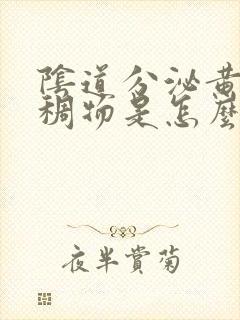 陰道分泌黃
稠物是怎麼
夜半賞菊